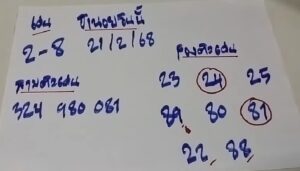 เด่น
2-8 21/2/68
สามตัวเด่น
324 980 081
สองตัวเด่น
23 24 25
89 80 81
22 88